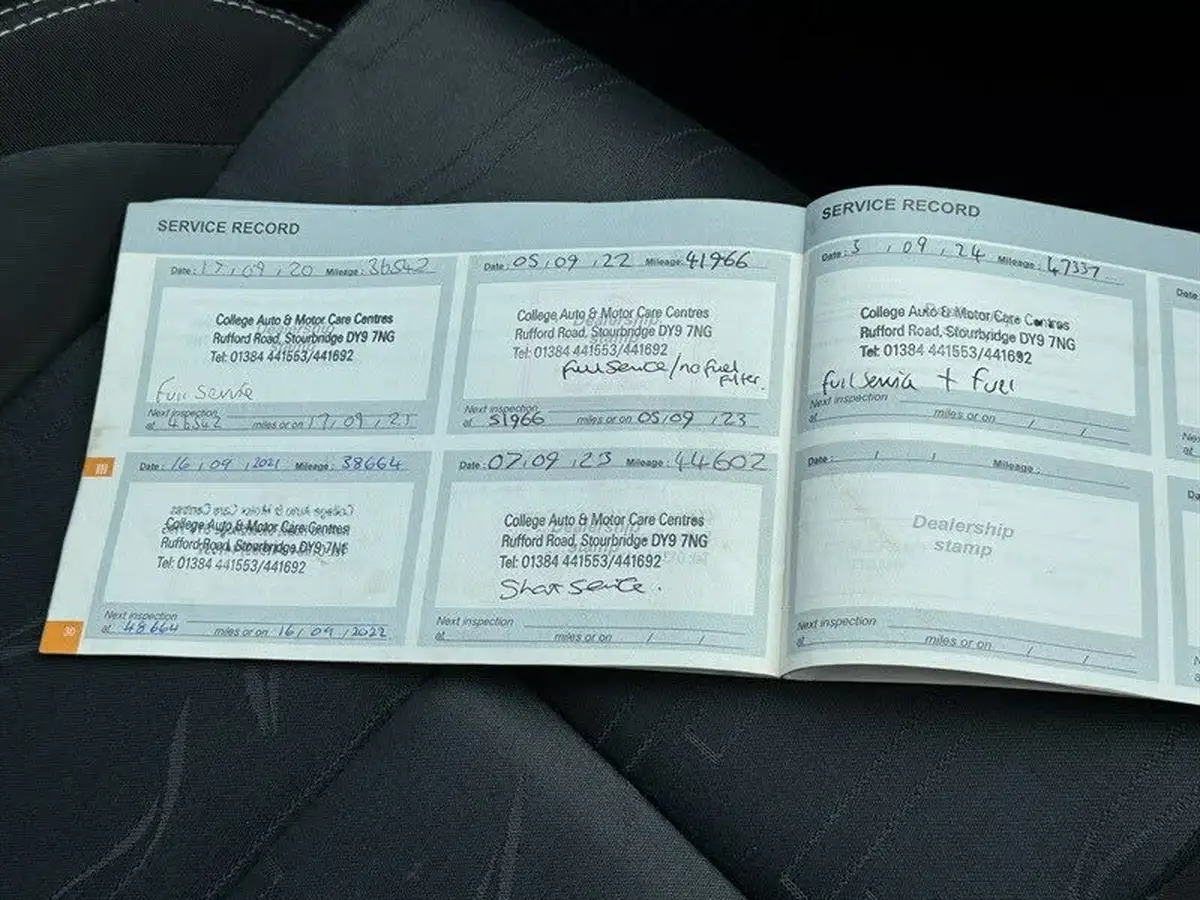 SERVICE RECORD
Date: 17 / 09 / 20 Mileage: 36542
College Auto & Motor Care Centres
Rufford Road, Stourbridge DY9 7NG
Tel: 01384 441553/441692
Full Service
Next inspection
at 46542 miles or on 17 / 09 / 21
Date: 16 / 09 / 2021 Mileage: 38664
College Auto & Motor Care Centres
Rufford Road, Stourbridge DY9 7NG
Tel: 01384 441553/441692
Next inspection
at 48664 miles or on 16 / 09 / 2022
30
Date: 05 / 09 / 22 Mileage: 41966
College Auto & Motor Care Centres
Rufford Road, Stourbridge DY9 7NG
Tel: 01384 441553/441692
full service / no fuel
filter.
Next inspection
at 51966 miles or on 05 / 09 / 23
Date: 07 / 09 / 23 Mileage: 44602
College Auto & Motor Care Centres
Rufford Road, Stourbridge DY9 7NG
Tel: 01384 441553/441692
Short Service.
Next inspection
at miles or on / /
SERVICE RECORD
Date: 3 / 09 / 24 Mileage: 47337
College Auto & Motor Care Centres
Rufford Road, Stourbridge DY9 7NG
Tel: 01384 441553/441692
full service + Fuel
Next inspection
at miles or on / /
Date: / / Mileage:
Dealership
stamp
Next inspection
at miles or on / /
Date
at